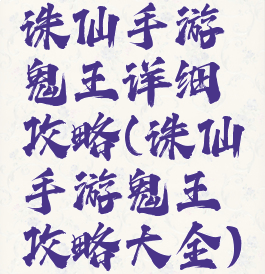 诛仙手游
鬼王详细
攻略(诛仙
手游鬼王
攻略大全)